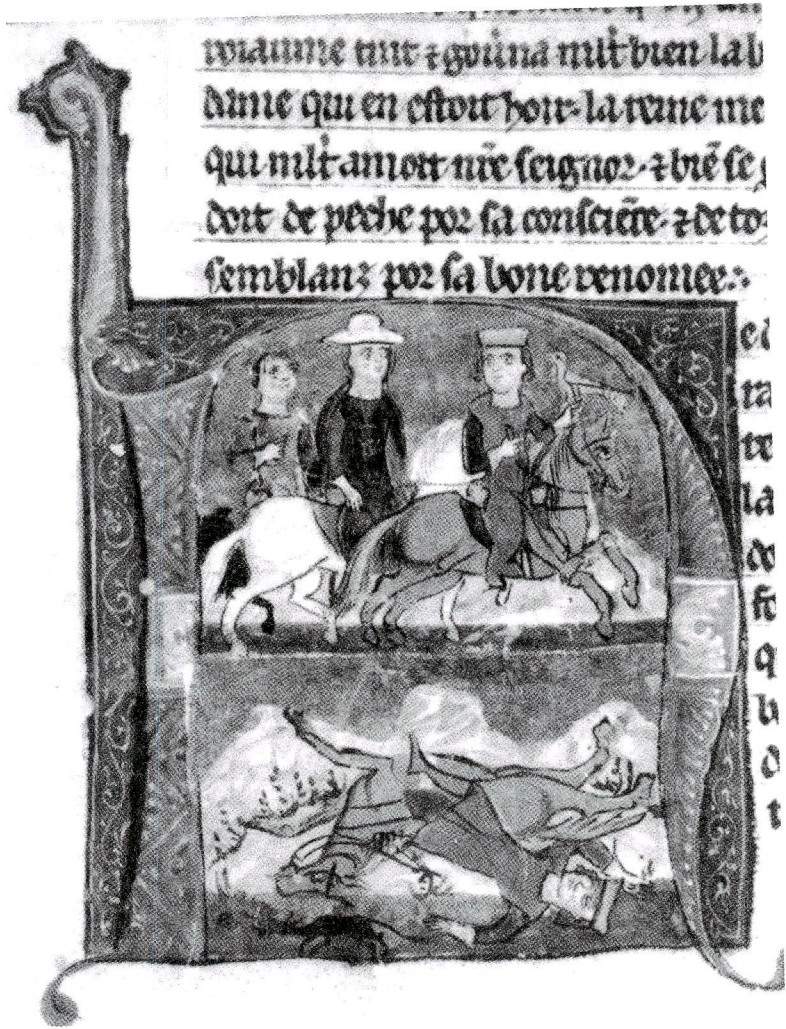 roiaume tint ⁊ gou̅na mlt̃ bien la b
dame qui en estoit hoir· la reine me
qui mlt̃ amoit nr̃e seignor· ⁊ biẽ se g
doit de peche por sa consciẽce· ⁊ de to
semblanz por sa bone renomee·
e
ra
te
la
do
fo
q
b
d
t